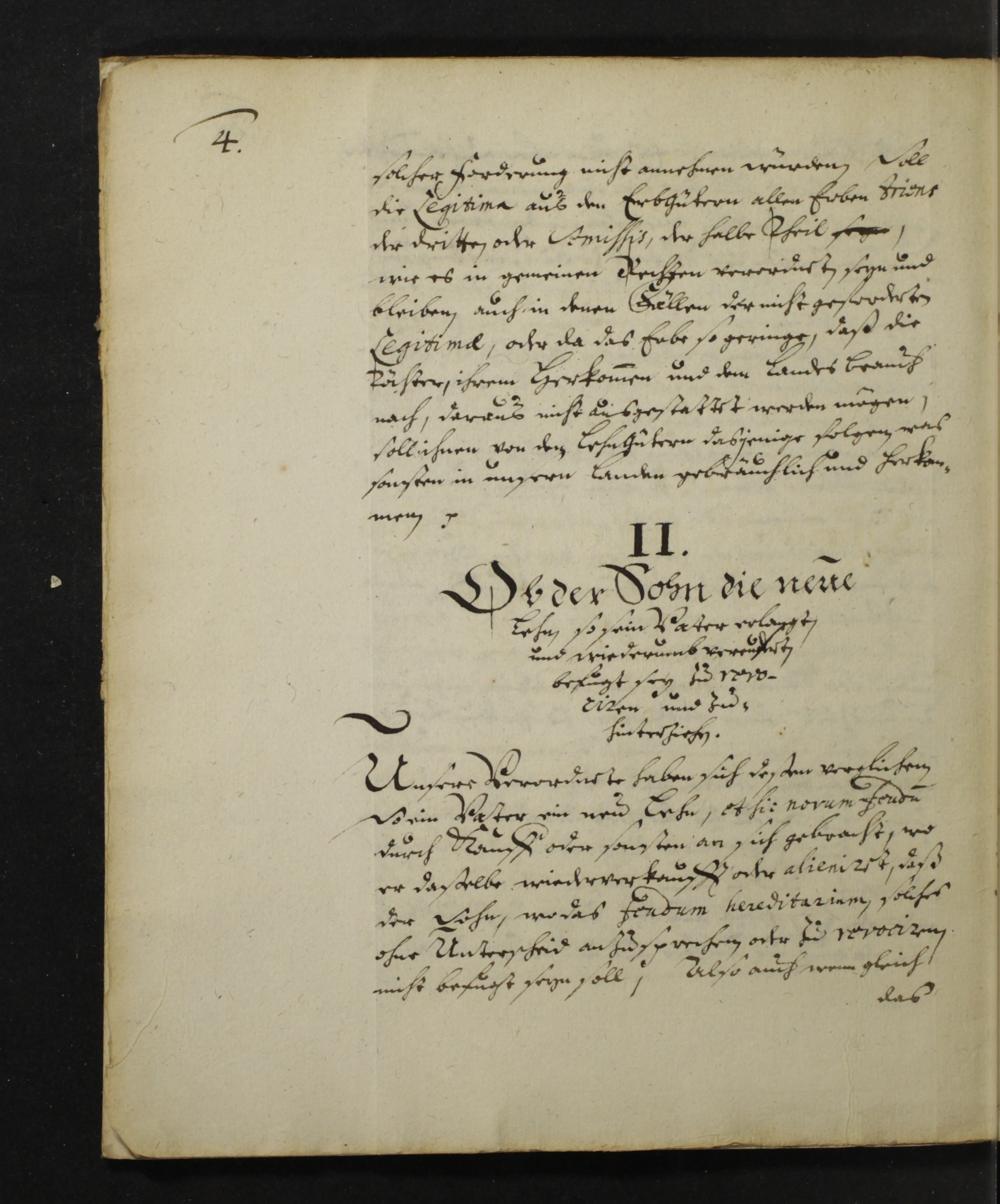 4.
solcher Forderung nicht annehmen würden, Soll
die Legitima aus den Erbgütern allen Erben triens
der dritte, oder Semissis, der halbe Theil
wie es in gemeinen Rechten verordnet, seyn und
bleiben, auch in denen Fällen der nicht geforderten
Legitimæ, oder da das Erbe so geringe, daß die
Töchter, ihrem Herkom̄en und dem Landes brauch
nach, daraus nicht ausgestattet werden mögen,
soll ihnen von den Lehngütern dasjenige folgen, was
sonsten in unseren Landen gebräuchlich und Herkom-
men
II.
Ob der Sohn die neue
Lehn, so sein Vater erlanget,
und wiederumb vereußert,
befugt sey zu revo-
ciren und zu
hinterziehen.
Unsere Verordnete haben sich dessen verglichen,
So ein Vater ein neu Lehn, et sic novum feudū
durch Kauff oder sonsten an sich gebracht, wo
er dasselbe wiederverkaufft oder alieniret, daß
der Sohn, wo das feudum hereditarium, solches
ohne Unterscheid anzusprechen, oder zu revociren,
nicht befugt seyn soll, Also auch wenn gleich
das